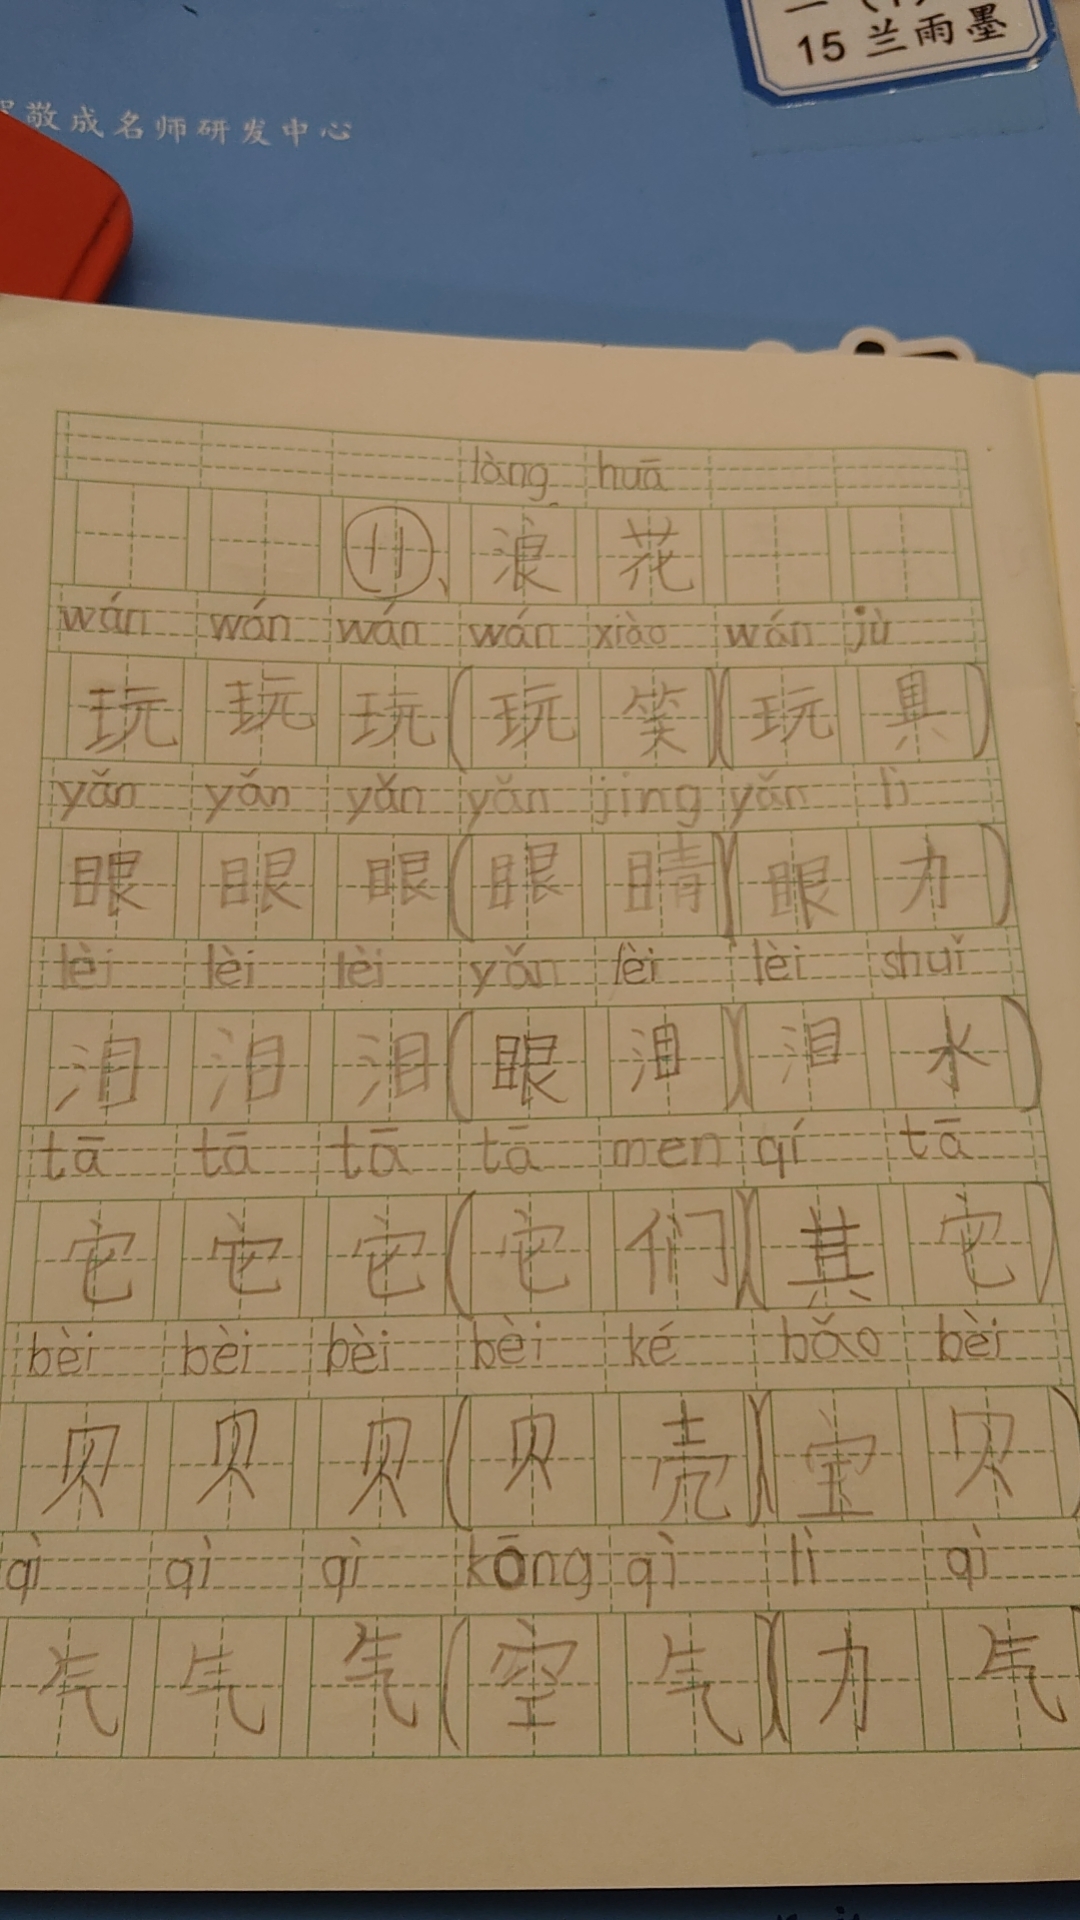 15 兰雨墨
敬成名师研发中心
làng huā
11、浪花
wán wán wán wán xiào wán jù
玩玩玩(玩笑)(玩具)
yǎn yǎn yǎn yǎn jing yǎn lì
眼眼眼(眼睛)(眼力)
lèi lèi lèi yǎn lèi lèi shuǐ
泪泪泪(眼泪)(泪水)
tā tā tā tā men qí tā
它它它(它们)(其它)
bèi bèi bèi bèi ké bǎo bèi
贝贝贝(贝壳)(宝贝)
qì qì qì kōng qì lì qì
气气气(空气)(力气)